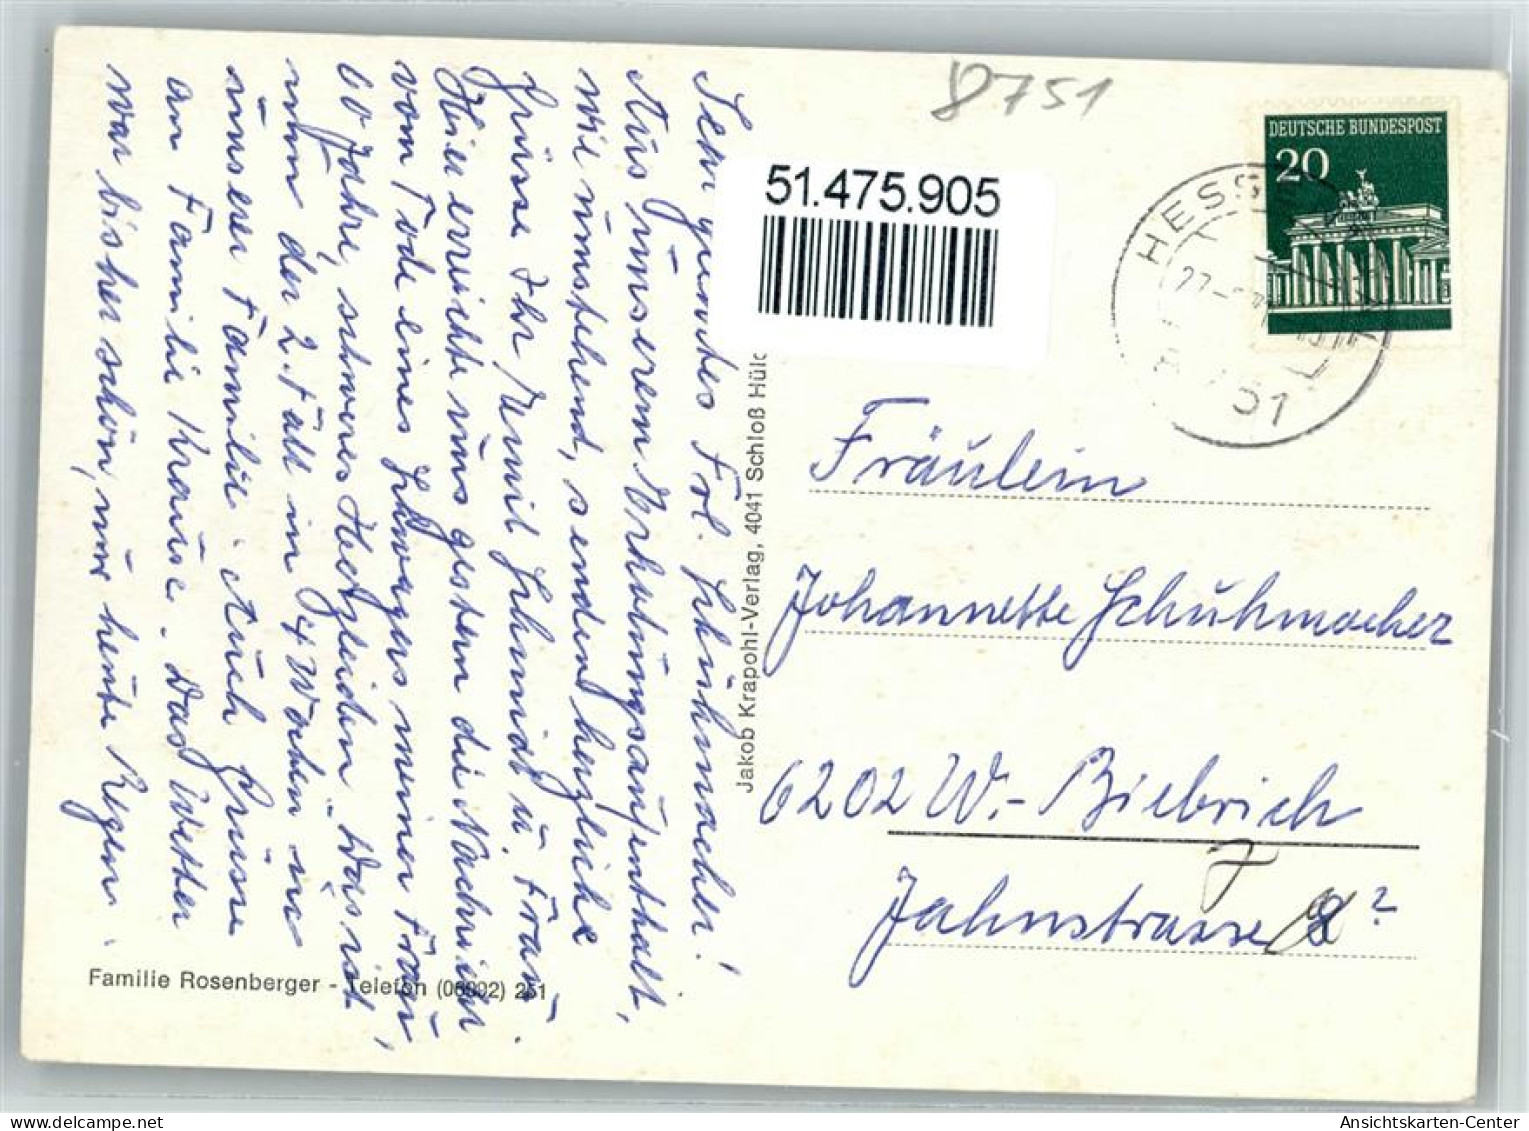 8751
DEUTSCHE BUNDESPOST
20
51.475.905
HESSE
51
Sehr geehrtes Frl. Schühmacher!
Aus unserem Erholungsaufenthalt,
wie umstehend, senden herzliche
Grüsse Ihr Emil Schmidt u. Frau.
Hier erreichte uns gestern die Nachricht
vom Tode eines Schwagers meiner Frau,
60 Jahre, schweres Herzleiden. Das ist
nun der 2. Fall in 14 Wochen in
unserer Familie. Auch Grüsse
an Familie Krause. Das Wetter
war bisher schön, nur heute Regen.
Familie Rosenberger - Telefon 251
Jakob Krapohl-Verlag, 4041 Schloß Hülc
Fräulein
Johannette Schuhmacher
6202 W.-Biebrich
7
Jahnstrasse 8?
Ansichtskarten-Center